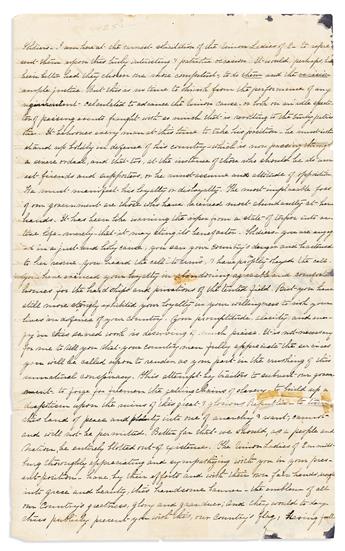 Soldiers. I am here at the earnest solicitation of the Union Ladies of to repre
sent them upon this truly interesting & patriotic occasion. It would, perhaps, had
been better had they chosen one more competent, to do them and the occasion
ample justice. But this is no time to shrink from the performance of any
calculated to advance the Union cause, or look on an idle specta
of passing events fraught with so much that is revolting to the truly patrio
tic. It behooves every man at this time to take his position. he must either
stand up boldly in defence of his country which is now passing through
a severe ordeal, and that too, at the instance of those who should be its warm
est friends and supporters, or he must assume and attitude of opposition
He must manifest his loyalty or disloyalty. The most implacable foes
of our government are those who have received most abundantly at her
hands. It has been like warming the viper from a state of torpor into ac
tive life, merely that it may sting its benefactor. Soldiers: you are engag
ed in a just and holy cause, you saw your country's danger and hastened
to her rescue. you heard the call to arms, & have promptly obeyed the call
You have evinced your loyalty in abandoning agreeable and comfortable
homes for the hardships and privations of the tented field. But you have
still more strongly exhibited your loyalty in your willingness to risk your
lives in defence of your country. Your promptitude, alacrity and
in this sacred work is deserving of much praise. It is not necessary
for me to tell you that your countrymen fully appreciate the services
you will be called upon to render as your part in the crushing of this
unnatural conspiracy. This attempt by traitors to subvert our govern
ment. to forge for freemen the galling chains of slavery, to build up a
despotism upon the ruins of this great & glorious Republic. to turn
this land of peace and plenty into one of anarchy & want, cannot
and will not be permitted. Better far that we should as a people and
Nation, be entirely blotted out of existence. The Union Ladies of
thoroughly appreciating and sympathizing with you in your pres
ent position. have, by their efforts and with their own fair hands,
into grace and beauty this handsome banner. the emblem of all
our Country's greatness, glory and grandeur, and they would to day
thus publicly present you with this, our Country's flag. Having